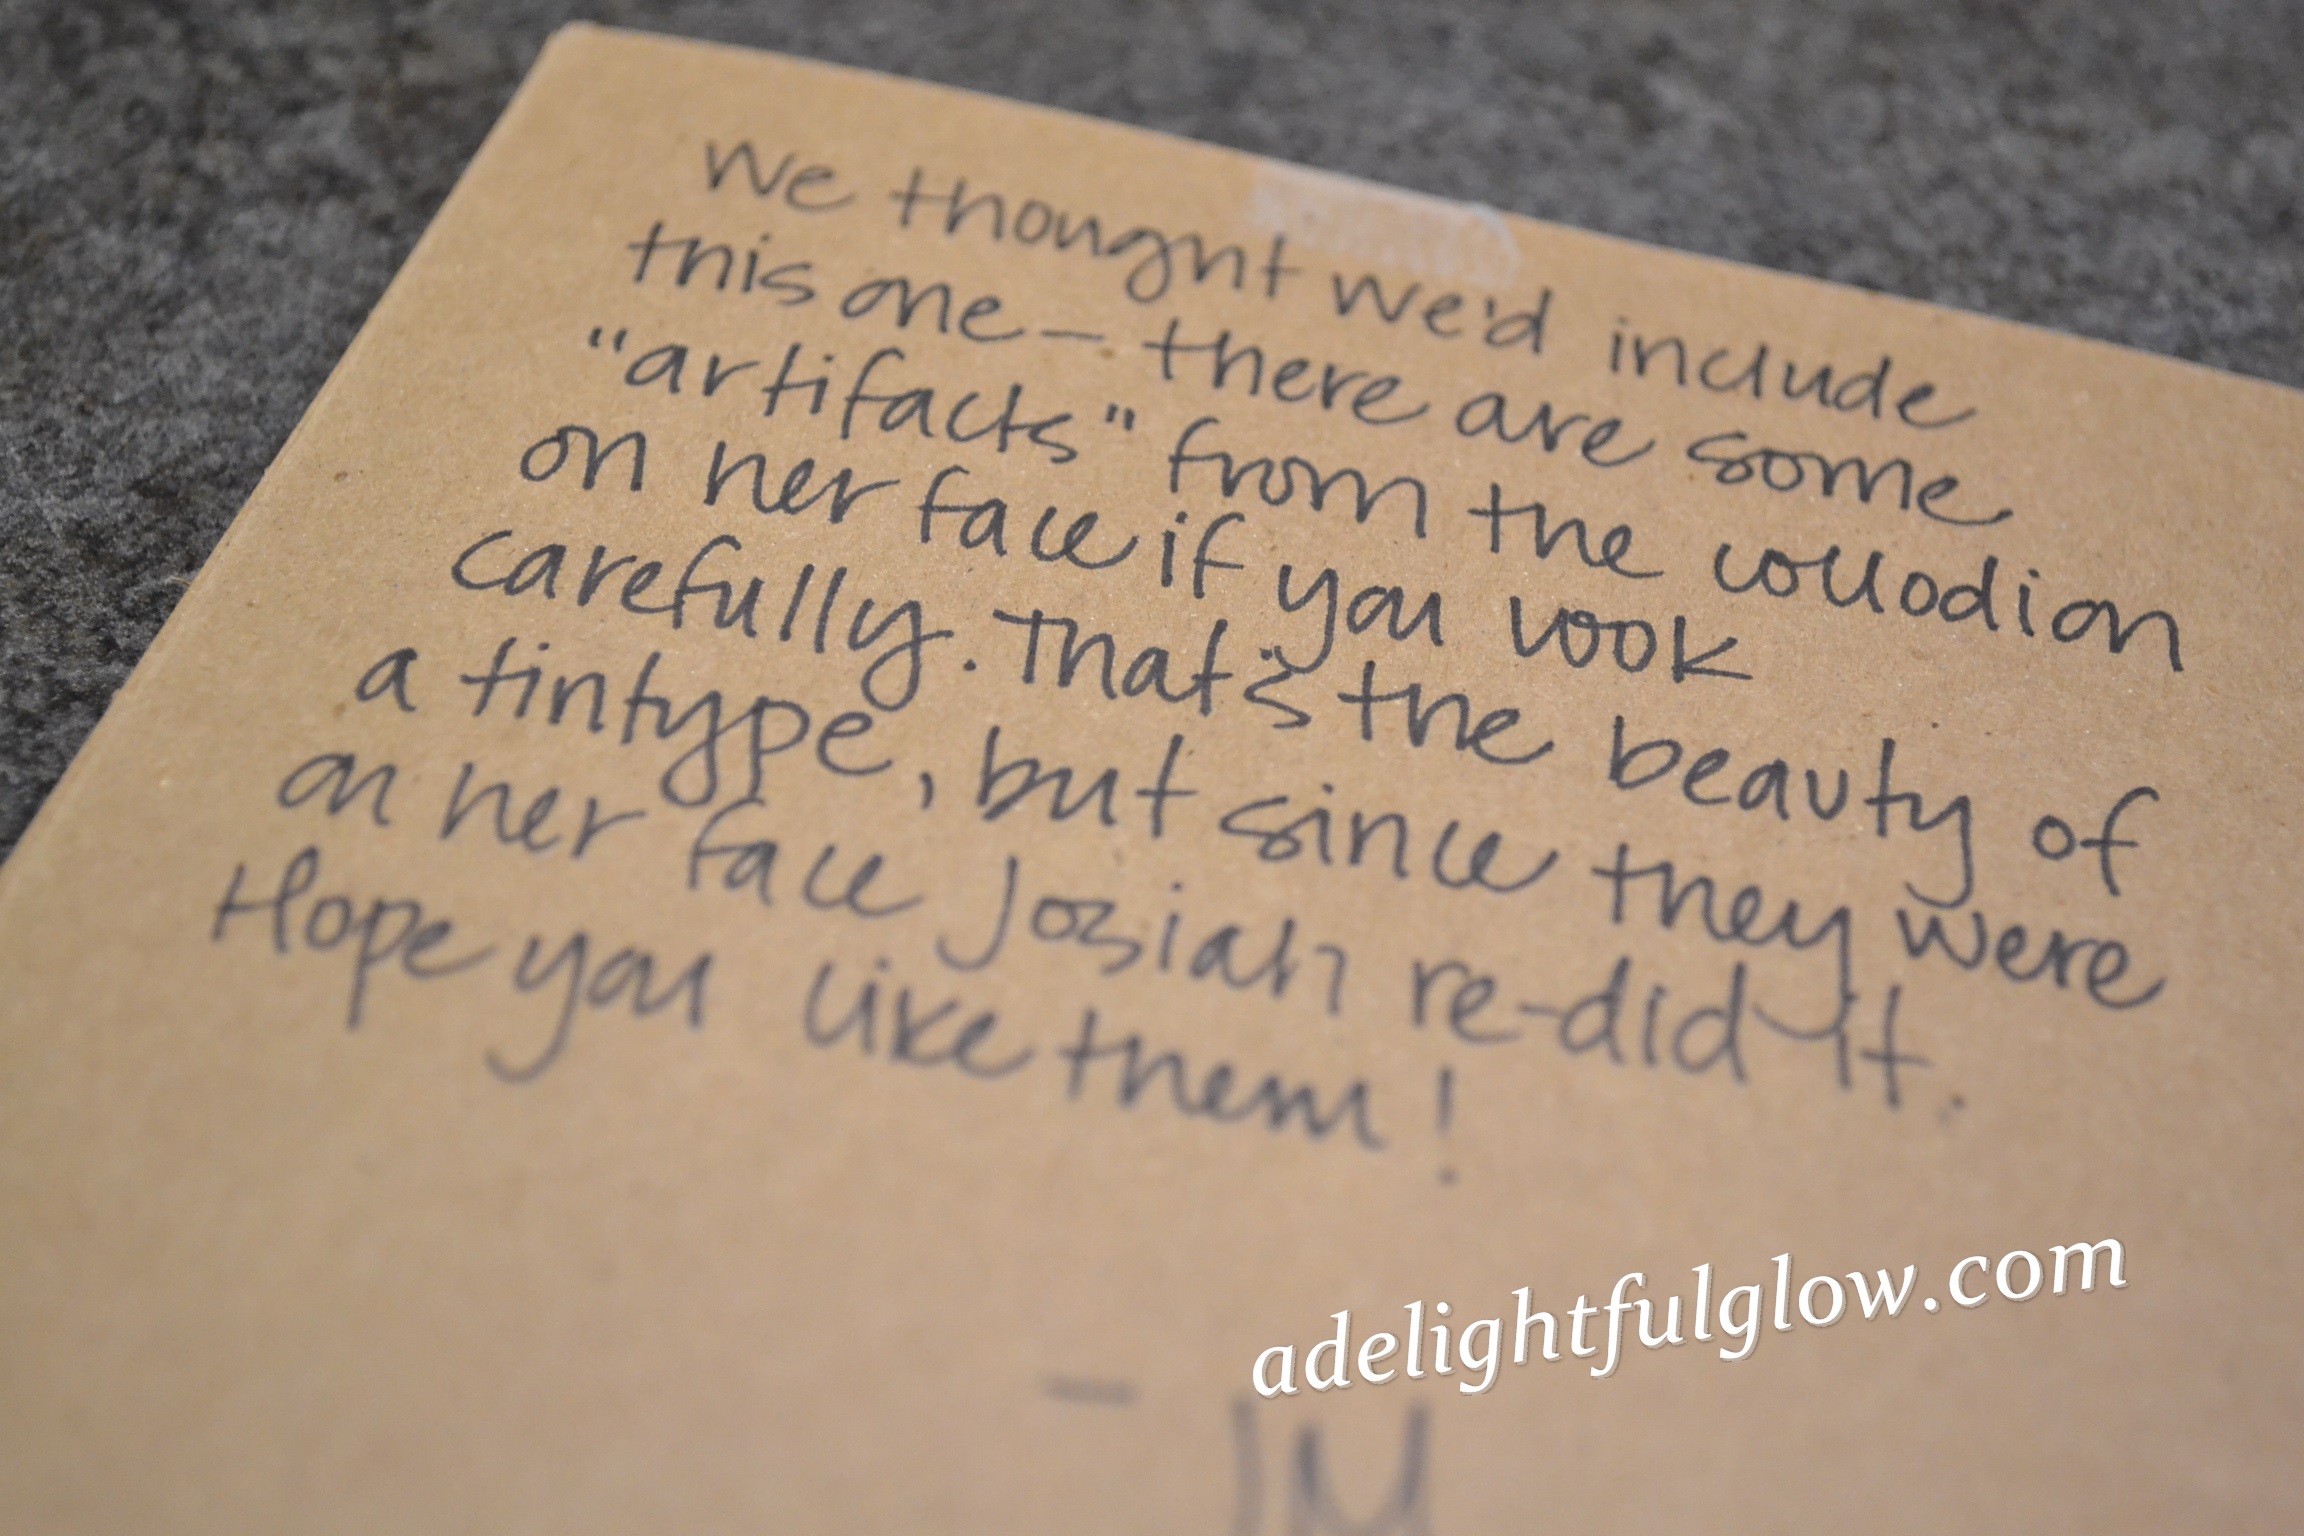 We thought we'd include
this one — there are some
"artifacts" from the collodion
on her face if you look
carefully. That's the beauty of
a tintype, but since they were
on her face Josiah re-did it.
Hope you like them!
adelightfulglow.com
—